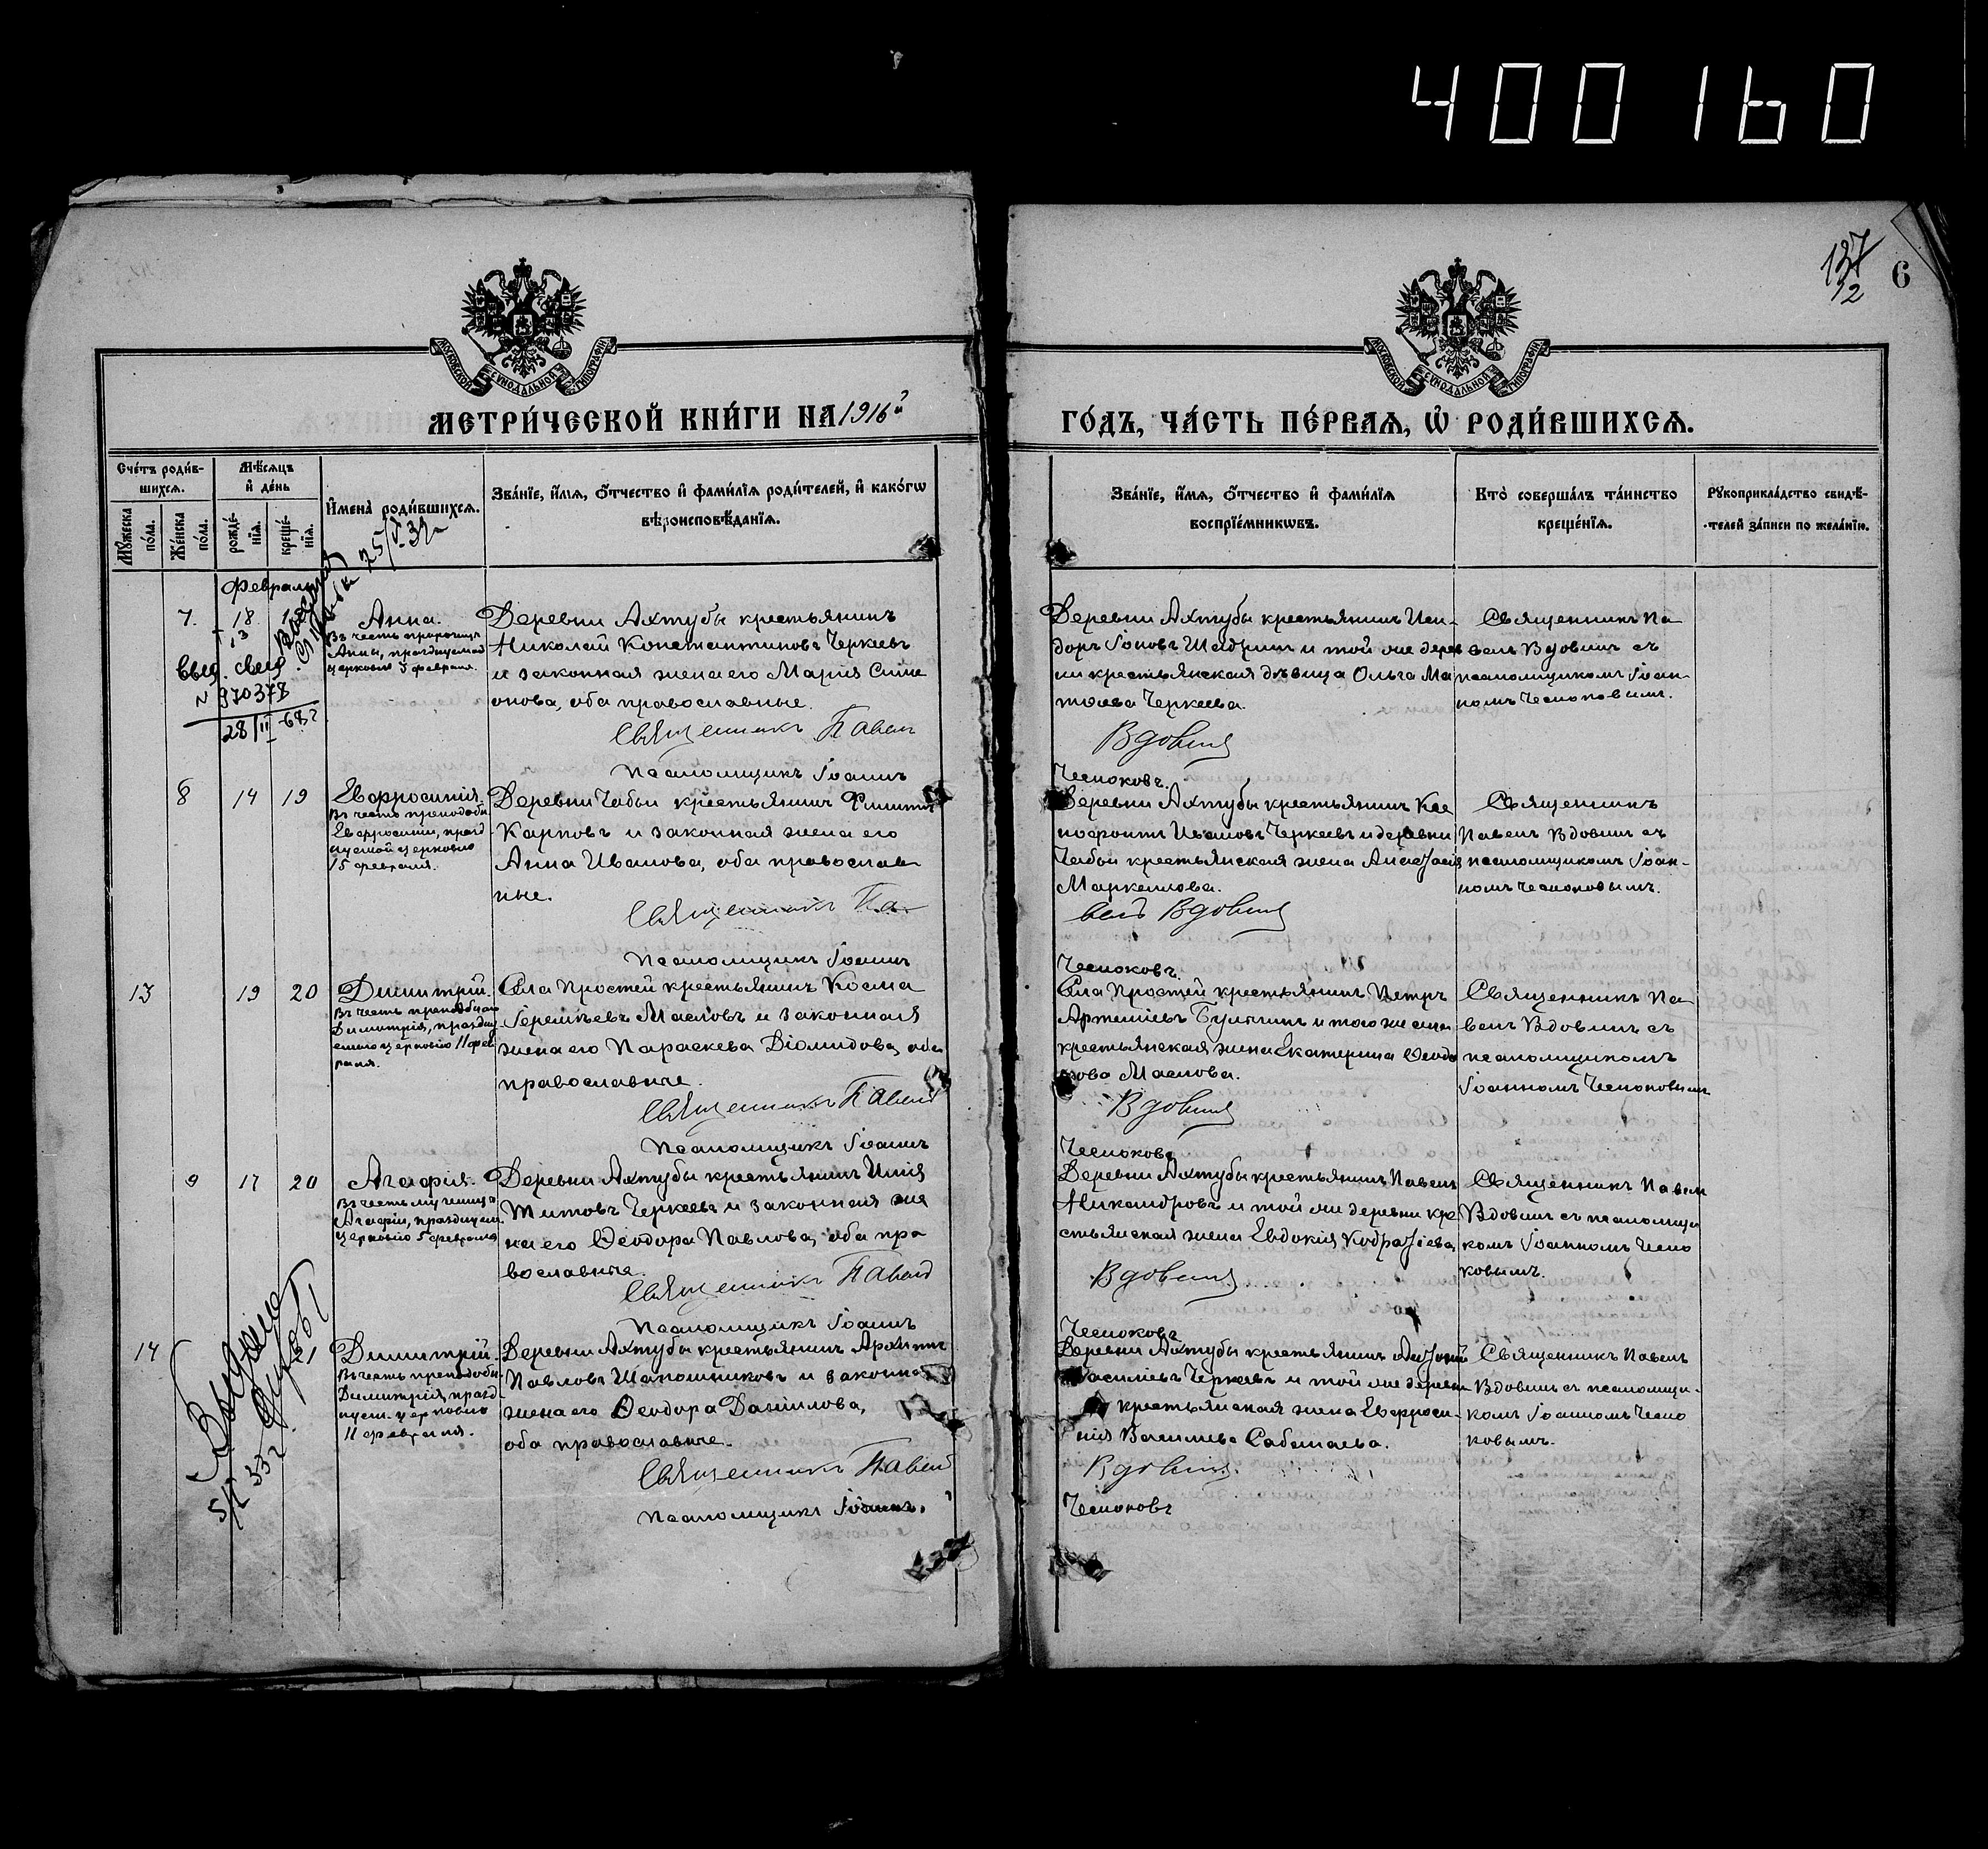 400160
137
12
6
МОСКОВСКОЙ СѴНОДАЛЬНОЙ ТИПОГРАФІИ
МОСКОВСКОЙ СѴНОДАЛЬНОЙ ТИПОГРАФІИ
МЕТРИ́ЧЕСКОЙ КНИ́ГИ НА 1916й
ГО́ДЪ, ЧА́СТЬ ПЕ́РВАѦ, Ѡ҆ РОДИ́ВШИХСѦ.
Сче́тъ роди́в-
шихсѧ.
Мꙋ́жеска
по́ла.
Же́нска
по́ла.
Мѣ́сѧцъ
и҆ де́нь
рожде́-
нїѧ.
креще́-
нїѧ.
И҆мена̀ роди́вшихсѧ.
Зва́нїе, и҆́мѧ, ѻ҆́тчество и҆ фами́лїѧ роди́телей, и҆ како́гѡ
вѣроисповѣ́данїѧ.
Зва́нїе, и҆́мѧ, ѻ҆́тчество и҆ фами́лїѧ
воспрїе́мникѡвъ.
Кто̀ соверша́лъ та́инство
креще́нїѧ.
Рꙋкоприкла́дство свидѣ́-
телей за́писи по жела́нїю.
Февраль
7. 18
13
Анна.
Въ честь пророчицы
Анны, празднуемой
церковію 3 февраля.
выд. свид
N 970378
28/II-68г
25/V-39г
Деревни Ахтубы крестьянинъ
Николай Константиновъ Черкеевъ
и законная жена его Марія Симе
онова, оба православные.
Священникъ Павелъ
Псаломщикъ Іоаннъ
Деревни Ахтубы крестьянинъ Иси-
доръ Іоновъ Шадринъ и той же дерев
ни крестьянская дѣвица Ольга Ма
тѳеева Черкеева.
Вдовинъ
Чесноковъ.
Священникъ Па
велъ Вдовинъ съ
псаломщикомъ Іоан-
номъ Чесноковымъ.
8 14 19
Евфросинія.
Въ честь преподобн.
Евфросиніи, празд
нуемой церковію
15 февраля.
Деревни Чабьи крестьянинъ Филиппъ
Карповъ и законная жена его
Анна Иванова, оба православ
ные.
Священникъ Па-
Псаломщикъ Іоаннъ
Деревни Ахтубы крестьянинъ Ксе
нофонтъ Ивановъ Черкеевъ и деревни
Чабьи крестьянская жена Анастасія
Маркеллова.
велъ Вдовинъ
Чесноковъ.
Священникъ
Павелъ Вдовинъ съ
псаломщикомъ Іоан-
номъ Чесноковымъ.
13 19 20
Димитрій.
Въ честь преподобнаго
Димитрія, праздну
емаго церковію 11 фев
раля.
Села Простей крестьянинъ Косма
Іереміевъ Масловъ и законная
жена его Параскева Діомидова, оба
православные.
Священникъ Павелъ
Псаломщикъ Іоаннъ
Села Простей крестьянинъ Петръ
Артеміевъ Булыгинъ и того же села
крестьянская жена Екатерина Ѳеодо
рова Маслова.
Вдовинъ
Чесноковъ
Священникъ Па
велъ Вдовинъ съ
псаломщикомъ
Іоанномъ Чесноковымъ
9 17 20
Агафія.
Въ честь мученицы
Агафіи, празднуем.
церковію 5 февраля
Деревни Ахтубы крестьянинъ Илія
Титовъ Черкеевъ и законная же
на его Ѳеодора Павлова, оба пра
вославные.
Священникъ Павелъ
Псаломщикъ Іоаннъ
Деревни Ахтубы крестьянинъ Павелъ
Никандровъ и той же деревни кре
стьянская жена Евдокія Кодратіева,
Вдовинъ
Чесноковъ
Священникъ Павелъ
Вдовинъ съ псаломщи
комъ Іоанномъ Чесно
ковымъ.
14 21
Димитрій.
Въ честь преподобн.
Димитрія, празд
нуем. церковію
11 февраля.
5/X 33г
Деревни Ахтубы крестьянинъ Архиппъ
Павловъ Шапошниковъ и законная
жена его Ѳеодора Даніилова,
оба православные.
Священникъ Павелъ
Псаломщикъ Іоаннъ
Деревни Ахтубы крестьянинъ Антоній
Василіевъ Черкеевъ и той же деревни
крестьянская жена Евфроси-
нія Василіева Сабанаева.
Вдовинъ.
Чесноковъ
Священникъ Павелъ
Вдовинъ съ псаломщи-
комъ Іоанномъ Чесно
ковымъ.